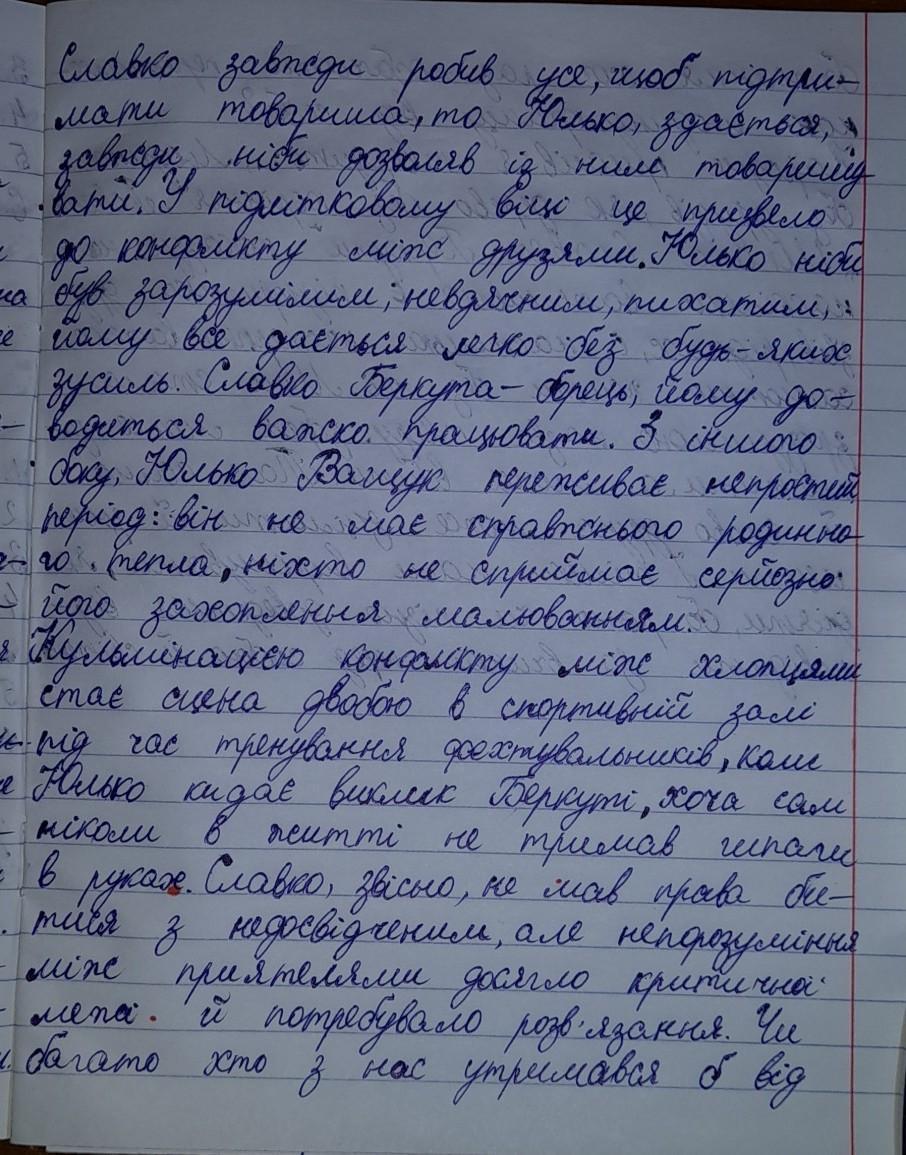 Славко завжди робив усе, щоб підтри-
мати товариша, то Юлько, здається,
завжди ніби дозволяв із ним товаришу
вати. У підлітковому віці це призвело
до конфлікту між друзями. Юлько ніби
був зарозумілим, невдячним, пихатим,
йому все дається легко без будь-яких
зусиль. Славко Беркута - борець, йому до-
водиться важко працювати. З іншого
боку, Юлько Ващук переживає непростий
період: він не має справжнього родинно-
го тепла, ніхто не сприймає серйозно
його захоплення малюванням.
Кульмінацією конфлікту між хлопцями
стає сцена двобою в спортивній залі
під час тренування фехтувальників, коли
Юлько кидає виклик Беркуті, хоча сам
ніколи в житті не тримав шпаги
в руках. Славко, звісно, не мав права би-
тися з недосвідченим, але непорозуміння
між приятелями досягло критичної
межі й потребувало розв'язання. Чи
багато хто з нас утримався б від